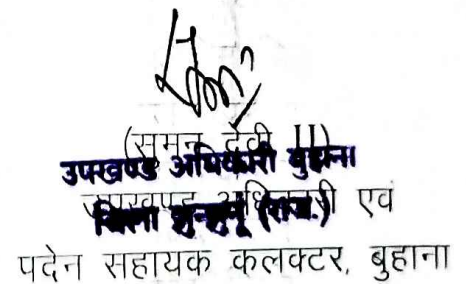 (सुमन देवी II)
उपखण्ड अधिकारी बुहाना
उपखण्ड अधिकारी एवं
जिला झुन्झुनूं (राज.)
पदेन सहायक कलक्टर, बुहाना